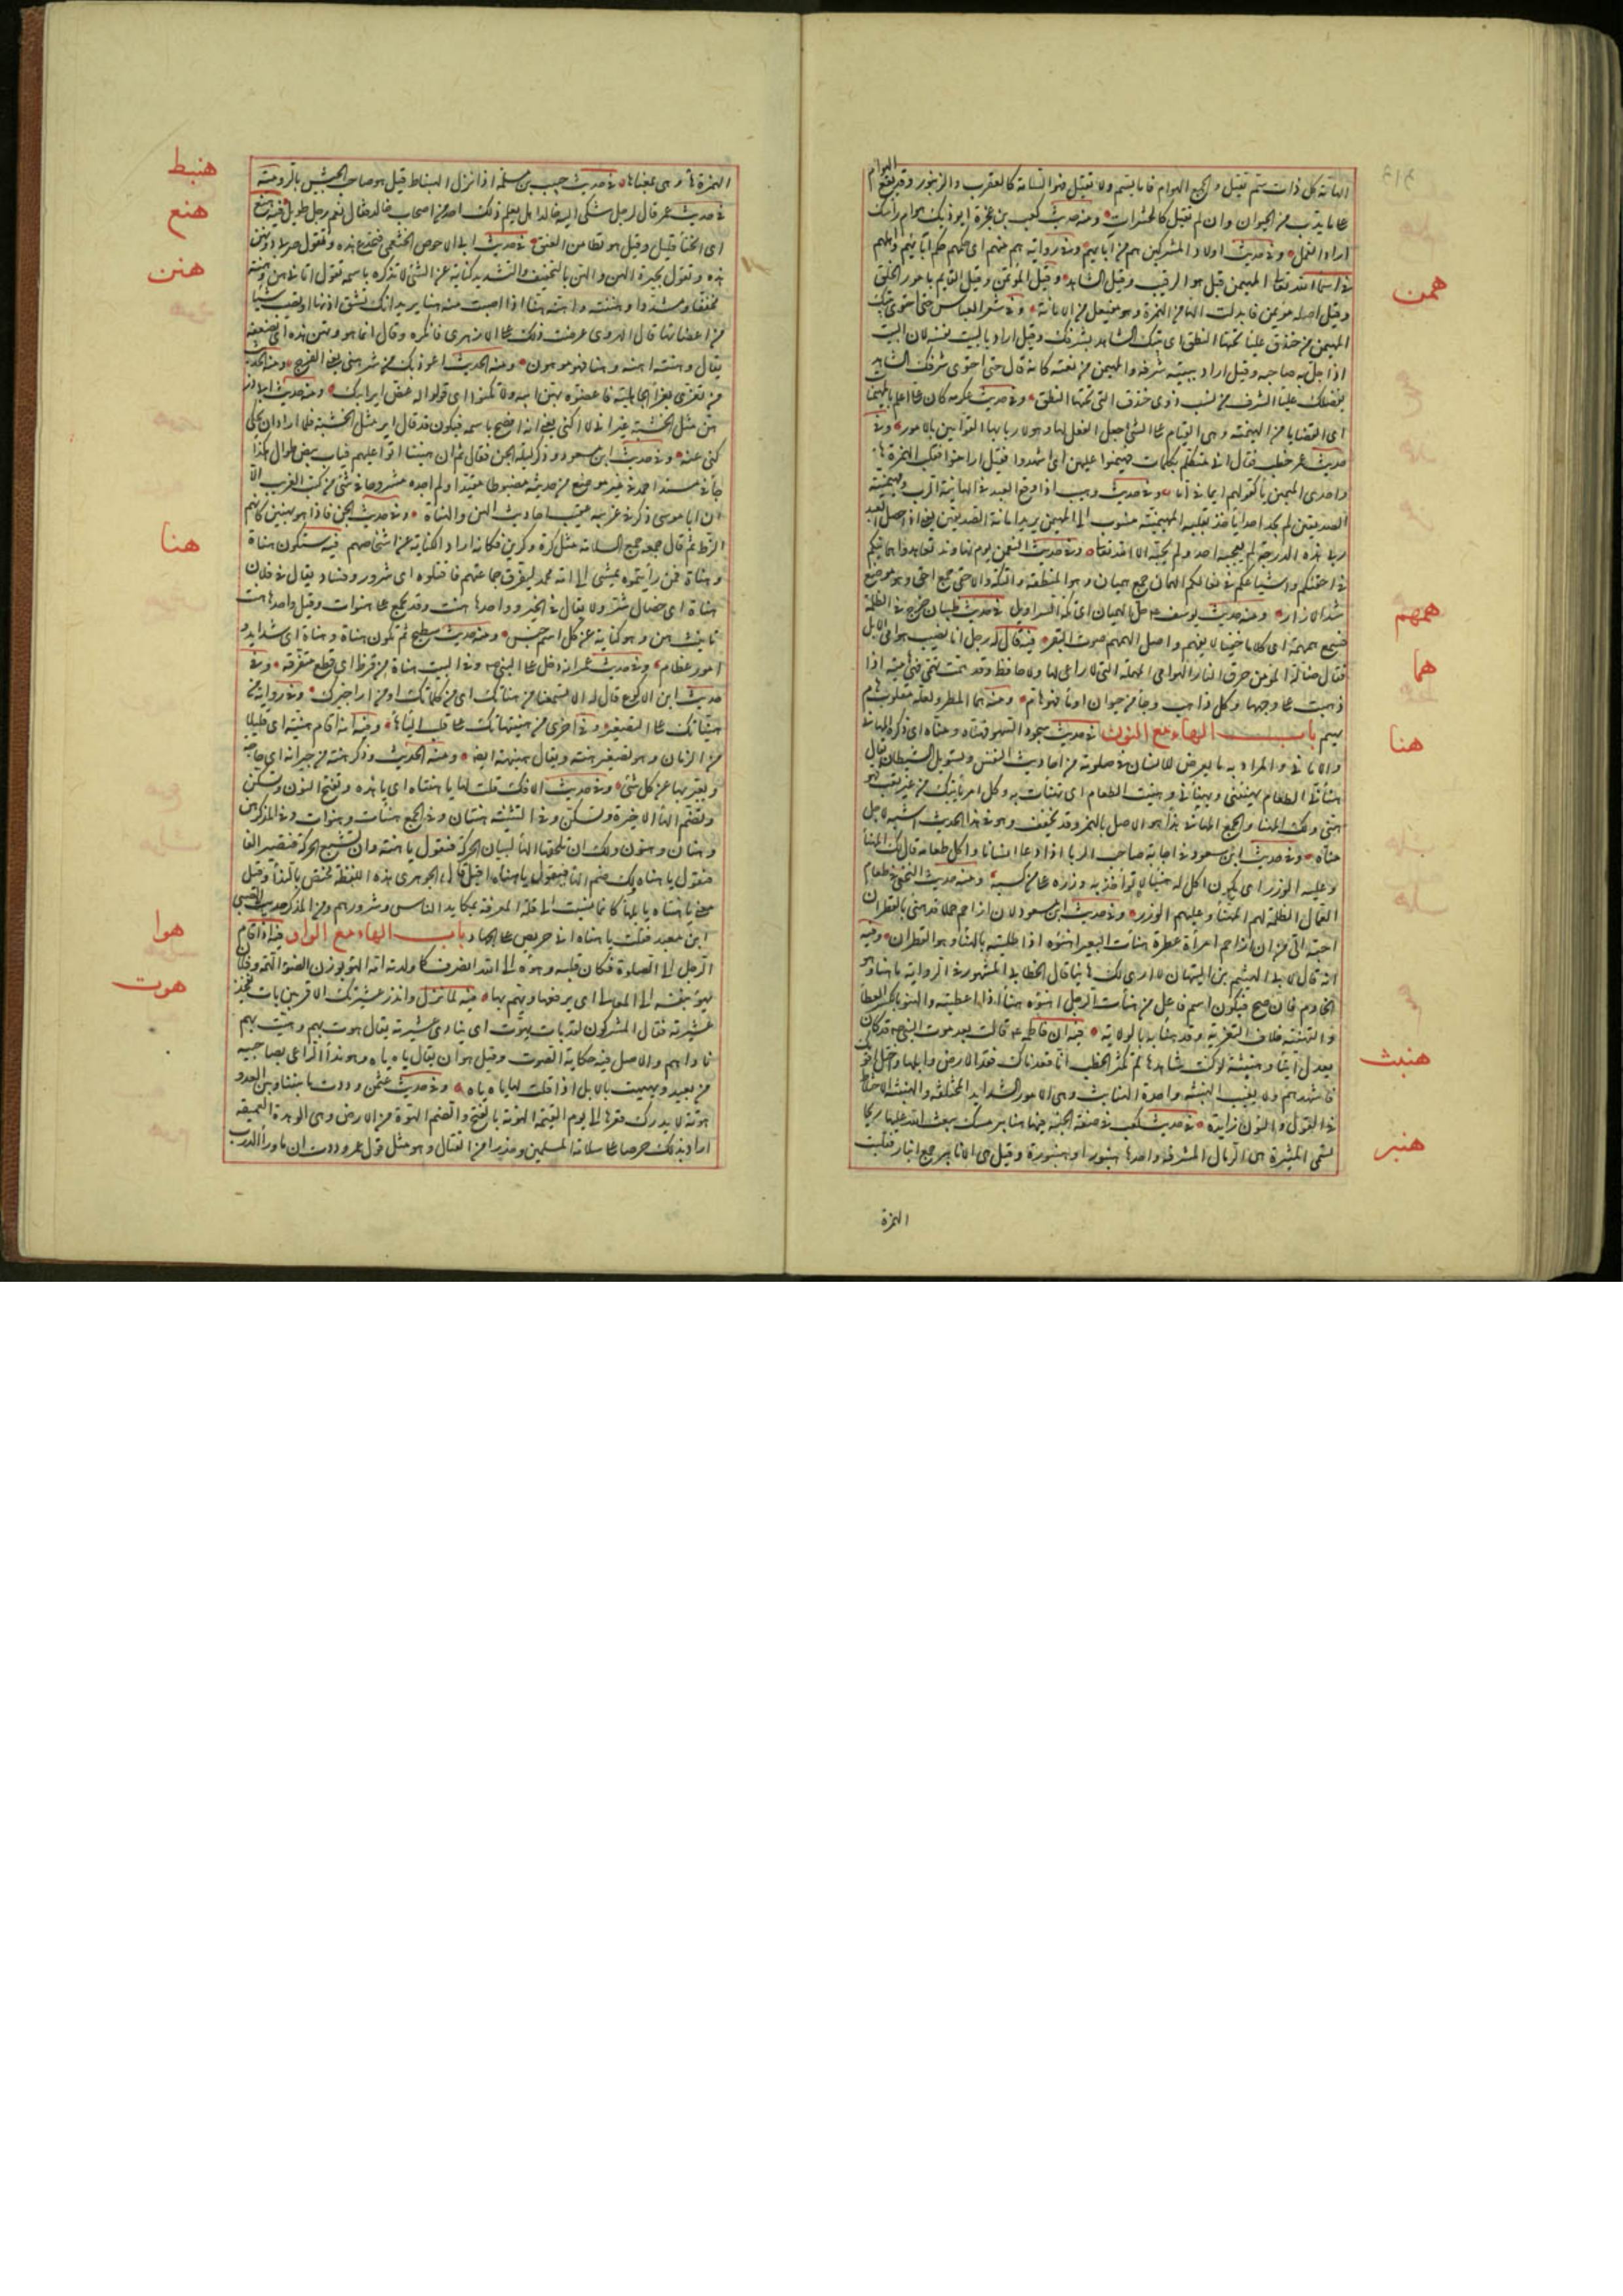 الهامة كل ذات سم يقتل والجمع الهوام فاما ما يسم ولا يقتل فهو السامة كالعقرب والزنبور وقد يقع الهوام
على ما يدب من الحيوان وان لم يقتل كالحشرات ومنه حديث كعب بن عجرة ايوذيك هوام راسك
اراد القمل وفي حديث اولاد المشركين هم من آبائهم وفي رواية هم منهم اى حكمهم حكم آبائهم واهلهم
همن
في اسماء الله تعالى المهيمن قيل هو الرقيب وقيل الشاهد وقيل المؤتمن وقيل القايم بامور الخلق
وقيل اصله مؤيمن فابدلت الهاء من الهمزة وهو مفيعل من الامانة وفي شعر العباس حتى احتوى بيتك
المهيمن من خندف علياء تحتها النطق اى بيتك الشاهد بشرفك وقيل اراد بالبيت نفسه لان البيت
اذا حل به صاحبه وقيل اراد ببيته شرفه والمهيمن من نعته كانه قال حتى احتوى شرفك الشاهد
بفضلك علياء الشرف من نسب ذوى خندف التى تحتها النطق وفي حديث عكرمة كان على اعلم بالمهيمنات
اى القضايا من الهيمنة وهى القيام على الشئ جعل الفعل لها وهو لاربابها القوامين بالامور وفي
حديث عمر خطب فقال انى متكلم بكلمات فهيمنوا عليهن اى اشهدوا وقيل اراد امنوا فقلب الهمزة هاء
واحدى الميمين ياء كقولهم ايما في اما وفي حديث وهيب اذا وقع العبد في الهانية الرب ومهيمنية
الصديقين لم يجد احدا ياخذ بقلبه المهيمنية منسوب الى المهيمن يريد امانة الصديقين يعنى اذا حصل العبد
في هذه الدرجة لم يعجبه احد ولم يحب الا الله تعالى وفي حديث النعمن يوم نهاوند تعاهدوا هماينكم
في احقيكم واشساعكم في نعالكم الهماين جمع هميان وهو المنطقة والتكة والاحقى جمع احقى وهو موضع
همهم
شد الازار ومنه حديث يوسف م حل الهميان اى تكة السراويل في حديث ظبيان خرج في الظلمة
هما
فسمع همهمة اى كلاما خفيا لا يفهم واصل الهمهمة صوت البقر فيه قال له رجل انا نصيب هوامى الابل
فقال ضالة المؤمن حرق النار الهوامى المهملة التى لا راعى لها ولا حافظ وقد همت تهمى فهى هامية اذا
ذهبت على وجهها وكل ذاهب وجار من حيوان او ماء فهو هام ومنه هما المطر ولعله مقلوب هام
هنا
يهيم باب الهاء مع النون في حديث سجود السهو فهناه ومناه اى ذكره المهانئ
والامانى والمراد به ما يعرض للانسان في صلوته من احاديث النفس وتسويل الشيطان يقال
هنأنى الطعام يهنئنى ويهنأنى وهنئت الطعام اى تهنأت به وكل امر ياتيك من غير تعب فهو
هنئ ولك المهنأ والجمع المهانئ هذا هو الاصل بالهمز وقد يخفف وهو في هذا الحديث اشبه لاجل
مناه وفي حديث ابن مسعود في اجابة صاحب الربا اذا دعا انسانا واكل طعامه قال لك المهنأ
وعليه الوزر اى يكون اكلك له هنيئا لا تؤاخذ به ووزره على من كسبه ومنه حديث النخعى في طعام
العمال الظلمة لهم المهنأ وعليهم الوزر وفي حديث ابن مسعود لان ازاحم جملا قد هنئ بالقطران
احب الى من ان ازاحم امرأة عطرة هنأت البعير اهنؤه اذا طليته بالهناء وهو القطران وفيه
انه قال لابى الهيثم بن التيهان لا ارى لك هانئا قال الخطابى المشهور في الرواية ماهنا وهو
الخادم فان صح فيكون اسم فاعل من هنأت الرجل اهنؤه هنأ اذا اعطيته والهنؤ بالكسر العطاء
هنبث
والتهنئة خلاف التعزية وقد هنأته بالولاية فيه ان فاطمة م قالت بعد موت النبى م قد كان
بعدك انباء وهنبثة لو كنت شاهدها لم تكثر الخطب انا فقدناك فقد الارض وابلها واختل قومك
فاشهدهم ولا تغب الهنبثة واحدة الهنابث وهى الامور الشدايد المختلفة والهنبثة الاختلاط
هنبر
في القول والنون زايدة في حديث كعب في صفة الجنة فيها هنابير مسك يبعث الله عليها ريحا
تسمى المثيرة هى الرمال المشرفة واحدها هنبور او هنبورة وقيل هى الانابير جمع انبار فقلبت
الهمزة
هنبط
الهمزة هاء وهى بمعناها في حديث حبيب بن مسلمة اذا نزل الهنباط قيل هو صاحب الجيش بالرومية
هنع
في حديث عمر قال لرجل شكى اليه خالدا هل يعلم ذلك احد من اصحاب خالد فقال نعم رجل طويل فيه هنع
اى انحناء قليل وقيل هو تطامن العنق في حديث ابى الاحوص الجشمى فتجدع هذه وتقول صربى وتهن
هنن
هذه وتقول بحيرة الهن والهن بالتخفيف والتشديد كناية عن الشئ لا تذكره باسمه تقول اتانى هن وهنة
مخففا ومشددا وهننته واهنته هنا اذا اصبت منه هنا يريد انك تشق اذنها او تصيب شيئا
من اعضائها قال الهروى عرضت ذلك على الازهرى فانكره وقال انما هو وتهن هذه اى تضعفه
يقال وهنته اهنه وهنا فهو موهون ومنه الحديث اعوذ بك من شر هنى يعنى الفرج ومنه الحديث
من تعزى بعزاء الجاهلية فاعضوه بهن ابيه ولا تكنوا اى قولوا له عض اير ابيك ومنه حديث ابى ذر
هن مثل الخشبة غير انى لا اكنى يعنى انه افصح باسمه فيكون قد قال اير مثل الخشبة فلما اراد ان يحكى
كنى عنه وفي حديث ابن مسعود وذكر ليلة الجن فقال ثم ان هنينا اتوا عليهم ثياب بيض طوال هكذا
جاء في مسند احمد في غير موضع من حديثه مضبوطا مقيدا ولم اجده مشروحا في شئ من كتب الغريب الا
ان ابا موسى ذكر في غريبه عقيب احاديث الهن والهناة وفي حديث الجن فاذا هو بهنين كانهم
هنا
الزط ثم قال جمعه جمع السلامة مثل كرة وكرين فكانه اراد الكناية عن اشخاصهم فيه ستكون هناة
وهناة فمن رأيتموه يمشى الى امة محمد ليفرق جماعتهم فاقتلوه اى شرور وفساد يقال في فلان
هناة اى خصال شر ولا يقال في الخير وواحدها هنت وقد يجمع على هنوات وقيل واحدها هنة
تانيث هن وهو كناية عن كل اسم جنس ومنه حديث سطيح ثم تكون هناة وهناة اى شدايد و
امور عظام وفي حديث عمر انه دخل على النبى م وفي البيت هناة من قرظ اى قطع متفرقة وفي
حديث ابن الاكوع قال له الا تسمعنا من هناتك اى من كلماتك او من اراجيزك وفي رواية من
هنياتك على التصغير وفي اخرى من هنيهاتك على قلب الياء هاء وفيه انه اقام هنية اى قليلا
من الزمان وهو تصغير هنة ويقال هنيهة ايضا ومنه الحديث وذكر هنة من جيرانه اى حاجة
ويعبر بها عن كل شئ وفي حديث الافك قلت لها يا هنتاه اى يا هذه وتفتح النون وتسكن
وتضم الهاء الاخيرة وتسكن وفي التثنية هنتان وفي الجمع هنات وهنوات وفي المذكر هن
وهنان وهنون ولك ان تلحقها الهاء لبيان الحركة فتقول يا هنه وان تشبع الحركة فتصير الفا
فتقول يا هناه ولك ضم الهاء فيقول يا هناه اقبل قال الجوهرى هذه اللفظة تختص بالنداء وقيل
معنى يا هنتاه يا بلهاء كانها نسبت الى قلة المعرفة بمكايد الناس وشرورهم ومن المذكر حديث الصبى
هوا
ابن معبد فقلت يا هناه انى حريص على الجهاد باب الهاء مع الواو فيه اذا قام
الرجل الى الصلوة فكان قلبه وهوه الى الله انصرف كما ولدته امه الهوء بوزن الضوء الهمة وفلان
هوت
يهوء بنفسه الى المعالى اى يرفعها ويهم بها فيه لما نزل وانذر عشيرتك الاقربين بات يفخذ
عشيرته فقال المشركون لقد بات يهوت اى ينادى عشيرته يقال هوت بهم وهيت بهم
ناداهم والاصل فيه حكاية الصوت وقيل هو ان يقال ياه ياه وهو نداء الراعى لصاحبه
من بعيد ويهيهت بالابل اذا قلت لها ياه ياه وفي حديث عثمن وددت ما بيننا وبين العدو
هوتة لا يدرك قعرها الى يوم القيمة الهوتة بالفتح والضم الهوة من الارض وهى الوهدة العميقة
اراد بذلك حرصا على سلامة المسلمين وحذرا من القتال وهو مثل قول عمر وددت ان ما وراء الدرب